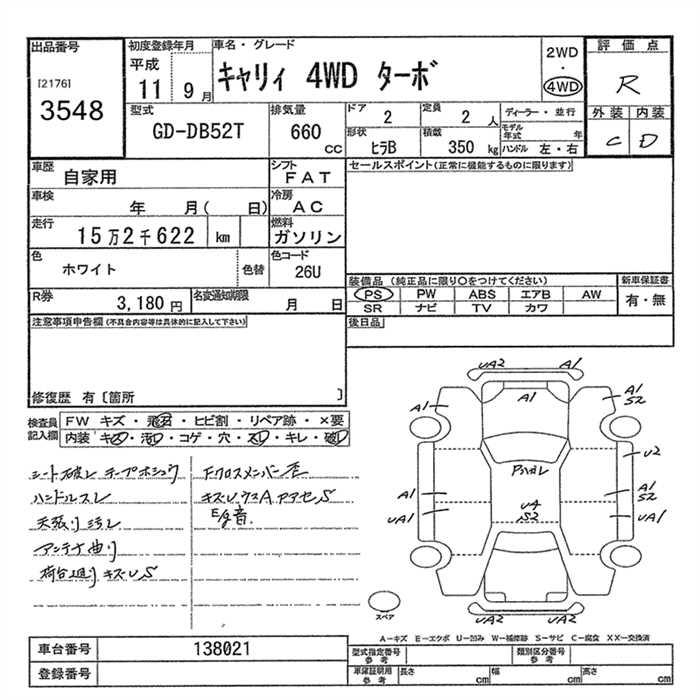 出品番号
[2176]
3548
初度登録年月
平成
11 9月
車名・グレード
キャリィ 4WD ターボ
2WD
・
4WD
評価点
R
外装 内装
C D
型式
GD-DB52T
排気量
660
CC
ドア
2
定員
2 人
ディーラー・並行
形状
ヒラB
積載
350 kg
モデル
年式 年
ハンドル 左・右
車歴
自家用
シフト
FAT
車検
年 月( 日)
冷房
AC
走行
15万2千622 km
燃料
ガソリン
色
ホワイト
色替
色コード
26U
R券
3,180 円
名変通知期限
月 日
セールスポイント(正常に機能するものに限ります)
装備品 (純正品に限り○をつけてください)
新車保証書
PS PW ABS エアB AW
有・無
SR ナビ TV カワ
後日品
注意事項申告欄 (不具合内容等は具体的に記入して下さい)
修復歴 有〔箇所 〕
検査員
記入欄
FW キズ・飛石・ヒビ割・リペア跡・×要
内装・キズ・汚レ・コゲ・穴・スレ・キレ・破レ
シート破レ テープホシュウ
ハンドルスレ
天張リ汚レ
アンテナ曲リ
荷台廻リキズU、S
Fクロスメンバー歪
キズU、ウスA、アチセS
E/g音.
UA2 A1
A1
A1
S2
U2
Pハガレ
A1
UA1
UA
S2
A1
S2
UA1
UA2 UA2
スペア
A−キズ E−エクボ U−凹み W−補修跡 S−サビ C−腐食 XX−交換済
車台番号
138021
登録番号
型式指定番号
参考
類別区分番号
参考
車庫証明用
参考
長さ cm
幅 cm
高さ cm